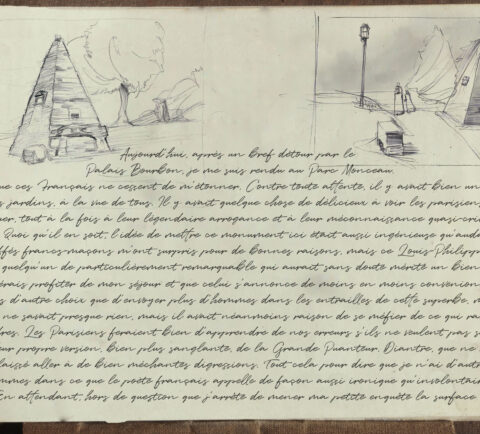 Aujourd'hui, après un bref détour par le
Palais Bourbon, je me suis rendu au Parc Monceau.
que ces Français ne cessent de m'étonner. Contre toute attente, il y avait bien un
s jardins, à la vue de tous. Il y avait quelque chose de délicieux à voir les parisiens
uer, tout à la fois à leur légendaire arrogance et à leur méconnaissance quasi-cri
Quoi qu'il en soit, l'idée de mettre ce monument ici était aussi ingénieuse qu'auda
ffés francs-maçons m'ont surpris pour de bonnes raisons, mais ce Louis-Philippe
quelqu'un de particulièrement remarquable qui aurait sans doute mérité un bien
érais profiter de mon séjour et que celui s'annonce de moins en moins convenion
s d'autre choix que d'envoyer plus d'hommes dans les entrailles de cette superbe, m
ne savait presque rien, mais il avait néanmoins raison de se méfier de ce qui ra
dres. Les Parisiens feraient bien d'apprendre de nos erreurs s'ils ne veulent pas s
eur propre version, bien plus sanglante, de la Grande Puanteur. Diantre, que ne
laissé aller à de bien méchantes digressions. Tout cela pour dire que je n'ai d'autr
mmes dans ce que le poète français appelle de façon aussi ironique qu'involontair
En attendant, hors de question que j'arrête de mener ma petite enquête à la surface